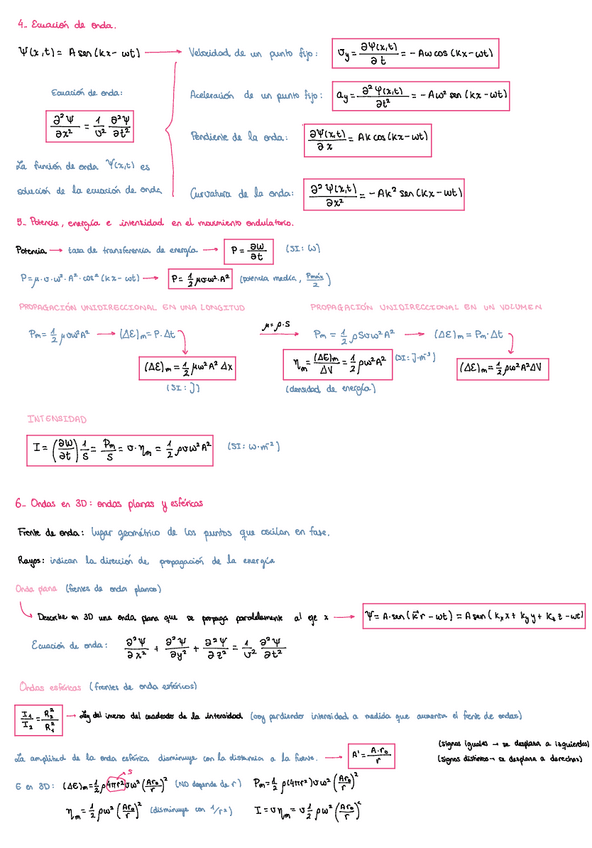 4_ Ecuación de onda.
Ψ(x,t) = A sen (kx - ωt) → Velocidad de un punto fijo: v_y = ∂Ψ(x,t)/∂t = - Aω cos (kx - ωt)
Ecuación de onda: Aceleración de un punto fijo: a_y = ∂²Ψ(x,t)/∂t² = - Aω² sen (kx - ωt)
∂²Ψ/∂x² = 1/v² ∂²Ψ/∂t² Pendiente de la onda: ∂Ψ(x,t)/∂x = Ak cos (kx - ωt)
La función de onda Ψ(x,t) es
solución de la ecuación de onda Curvatura de la onda: ∂²Ψ(x,t)/∂x² = - Ak² sen (kx - ωt)
5_ Potencia, energía e intensidad en el movimiento ondulatorio.
Potencia → tasa de transferencia de energía → P = ∂W/∂t (SI: W)
P = μ·v·ω²·A²·cos² (kx - ωt) → P = 1/2 μvω²·A² (potencia media, Pmáx/2)
PROPAGACIÓN UNIDIRECCIONAL EN UNA LONGITUD PROPAGACIÓN UNIDIRECCIONAL EN UN VOLUMEN
Pm = 1/2 μvω²A² → (ΔE)m = P·Δt μ = ρ·S → Pm = 1/2 ρSvω²A² → (ΔE)m = Pm·Δt
(ΔE)m = 1/2 μω²A²Δx ηm = (ΔE)m/ΔV = 1/2 ρω²A² (SI: J·m⁻³) (ΔE)m = 1/2 ρω²A²ΔV
(SI: J) (densidad de energía)
INTENSIDAD
I = (∂W/∂t) 1/S = Pm/S = v·ηm = 1/2 ρvω²A² (SI: W·m⁻²)
6_ Ondas en 3D: ondas planas y esféricas
Frente de onda: lugar geométrico de los puntos que oscilan en fase.
Rayos: indican la dirección de propagación de la energía
Onda plana (frentes de onda planos)
Describe en 3D una onda plana que se propaga paralelamente al eje x → Ψ = A·sen (k⃗ r - ωt) = A sen (kₓx + k_y y + k_z z - ωt)
Ecuación de onda: ∂²Ψ/∂x² + ∂²Ψ/∂y² + ∂²Ψ/∂z² = 1/v² ∂²Ψ/∂t²
Ondas esféricas (frentes de onda esféricos)
I₁/I₂ = R₂²/R₁² → Ley del inverso del cuadrado de la intensidad (voy perdiendo intensidad a medida que aumenta el frente de ondas)
La amplitud de la onda esférica disminuye con la distancia a la fuente. → A' = A·r₀/r
(signos iguales → se desplaza a izquierdas)
(signos distintos → se desplaza a derechas)
S
E en 3D: (ΔE)m = 1/2 ρ(4πr²)vω² (Ar₀/r)² (NO depende de r) Pm = 1/2 ρ(4πr²)vω² (Ar₀/r)²
ηm = 1/2 ρω² (Ar₀/r)² (disminuye con 1/r²) I = vηm = v 1/2 ρω² (Ar₀/r)²